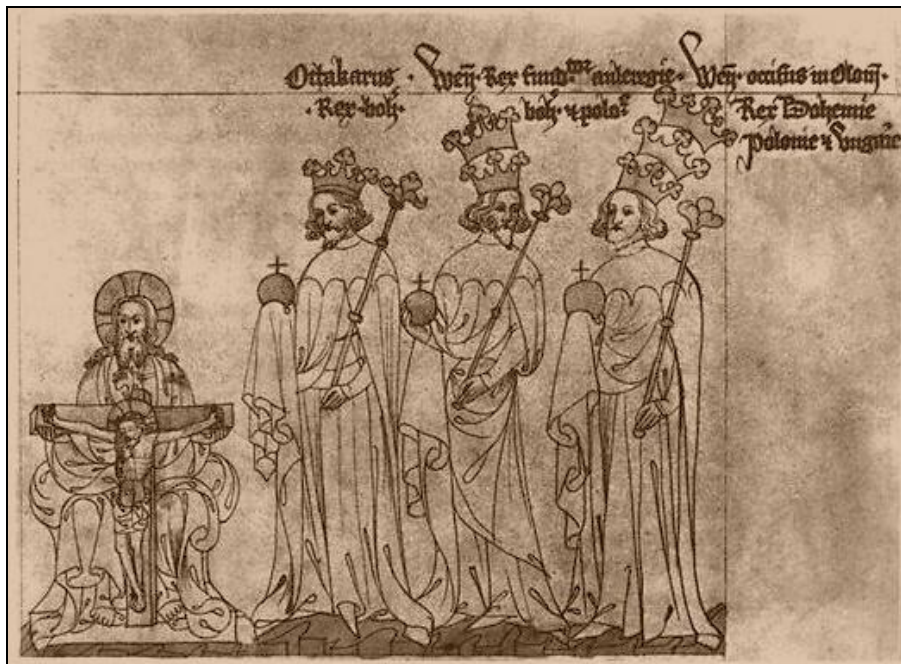 Ottakarus
· Rex boh
Weñ · Rex fund tor aule regie ·
boh & polo
Weñ · occisus in Olom
Rex Bohemie
polonie & vngarie